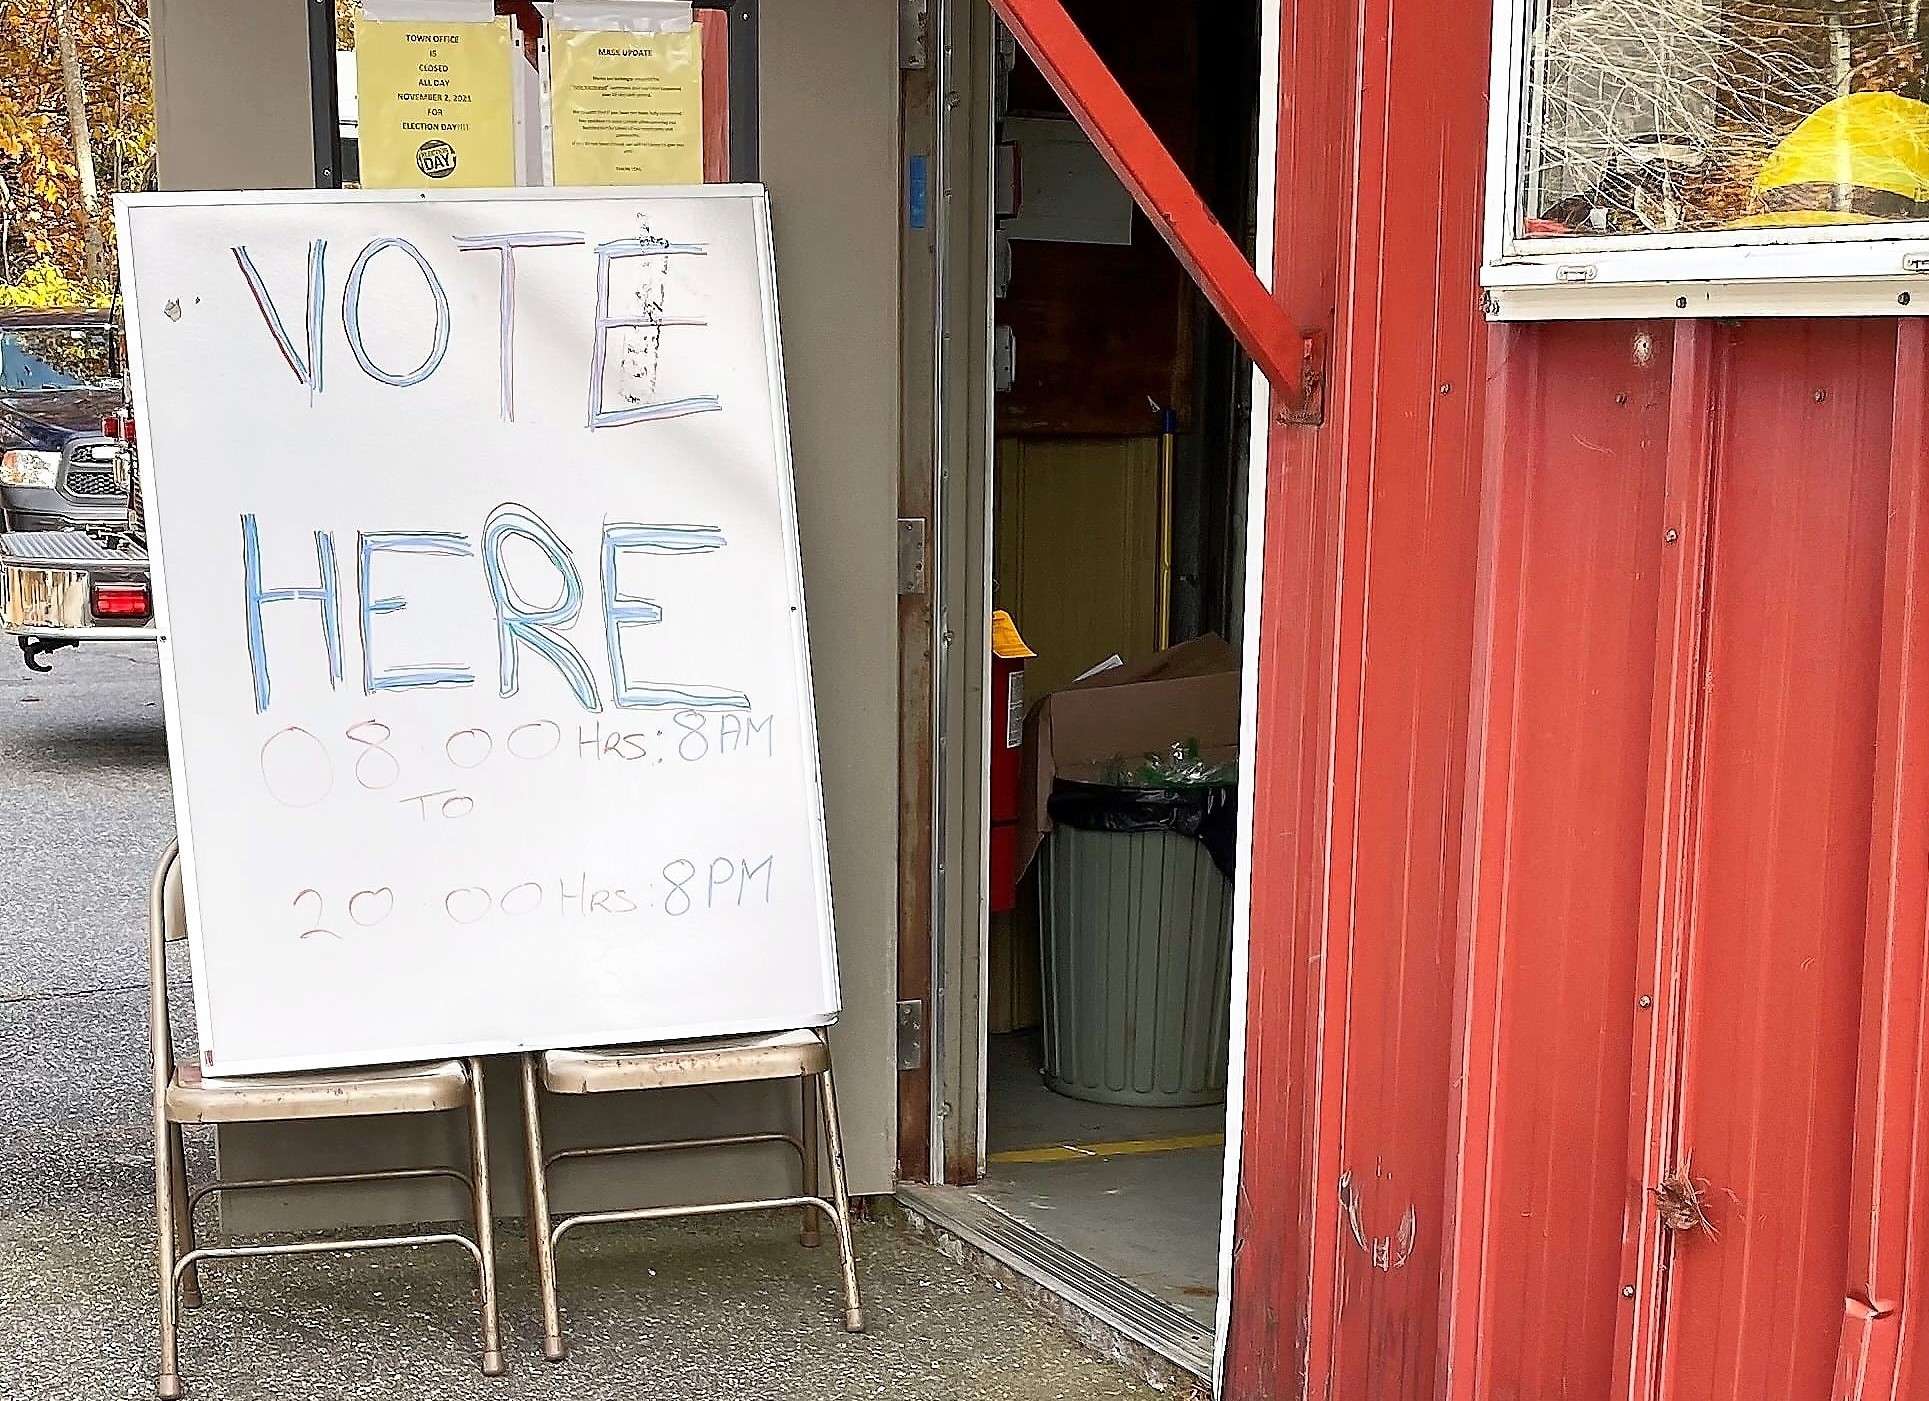 TOWN OFFICE
IS
CLOSED
ALL DAY
NOVEMBER 2, 2021
FOR
ELECTION DAY!!!!
ELECTION
DAY
MASK UPDATE
VOTE
HERE
08:00 HRS: 8AM
TO
20:00 HRS: 8PM